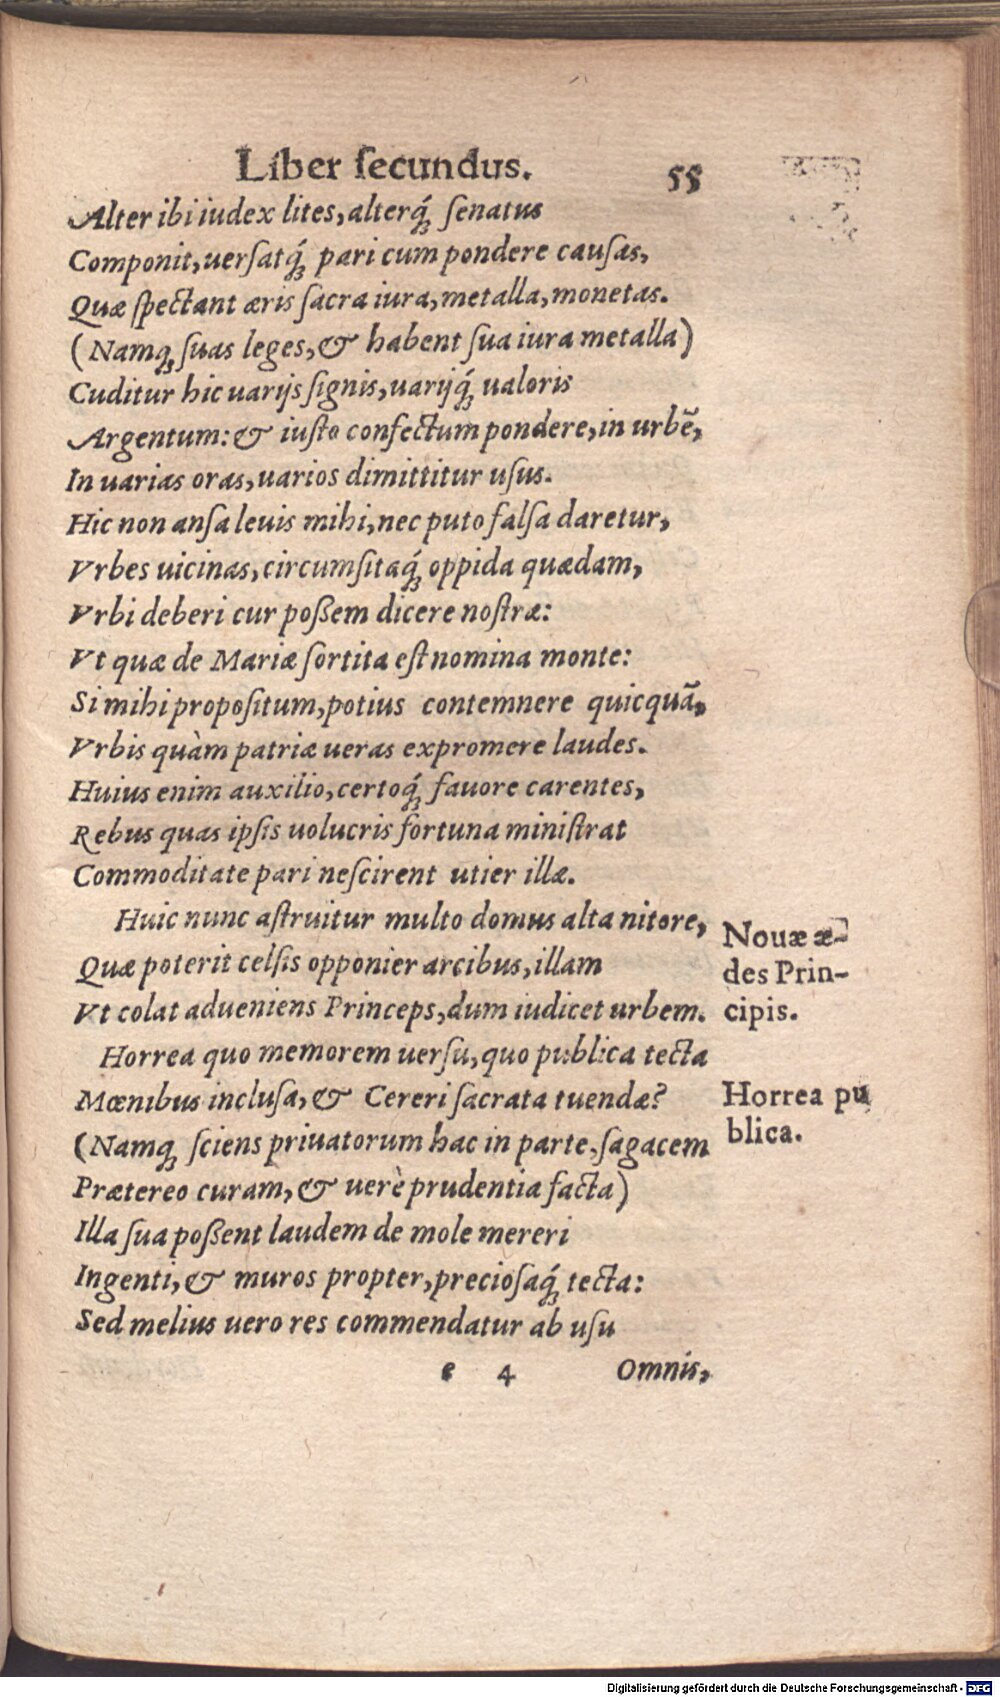 Liber ſecundus. 55
Alter ibi iudex lites, alterq́; ſenatus
Componit, uerſatq́; pari cum pondere cauſas,
Quæ ſpectant æris ſacra iura, metalla, monetas.
(Namq; ſuas leges, & habent ſua iura metalla)
Cuditur hic uarijs ſignis, uarijq́; ualoris
Argentum: & iuſto confectum pondere, in urbē,
In uarias oras, uarios dimittitur uſus.
Hic non anſa leuis mihi, nec puto falſa daretur,
Vrbes uicinas, circumſitaq́; oppida quædam,
Vrbi deberi cur poßem dicere noſtræ:
Vt quæ de Mariæ ſortita eſt nomina monte:
Si mihi propoſitum, potius contemnere quicquā,
Vrbis quàm patriæ ueras expromere laudes.
Huius enim auxilio, certoq́; fauore carentes,
Rebus quas ipſis uolucris fortuna miniſtrat
Commoditate pari neſcirent utier illæ.
Huic nunc aſtruitur multo domus alta nitore,
Quæ poterit celſis opponier arcibus, illam
Vt colat adueniens Princeps, dum iudicet urbem.
Nouæ æ-
des Prin-
cipis.
Horrea quo memorem uerſu, quo publica tecta
Mœnibus incluſa, & Cereri ſacrata tuendæ?
(Namq; ſciens priuatorum hac in parte, ſagacem
Prætereo curam, & uerè prudentia facta)
Horrea pu
blica.
Illa ſua poßent laudem de mole mereri
Ingenti, & muros propter, precioſaq́; tecta:
Sed melius uero res commendatur ab uſu
e 4 Omnis,
Digitalisierung gefördert durch die Deutsche Forschungsgemeinschaft - DFG